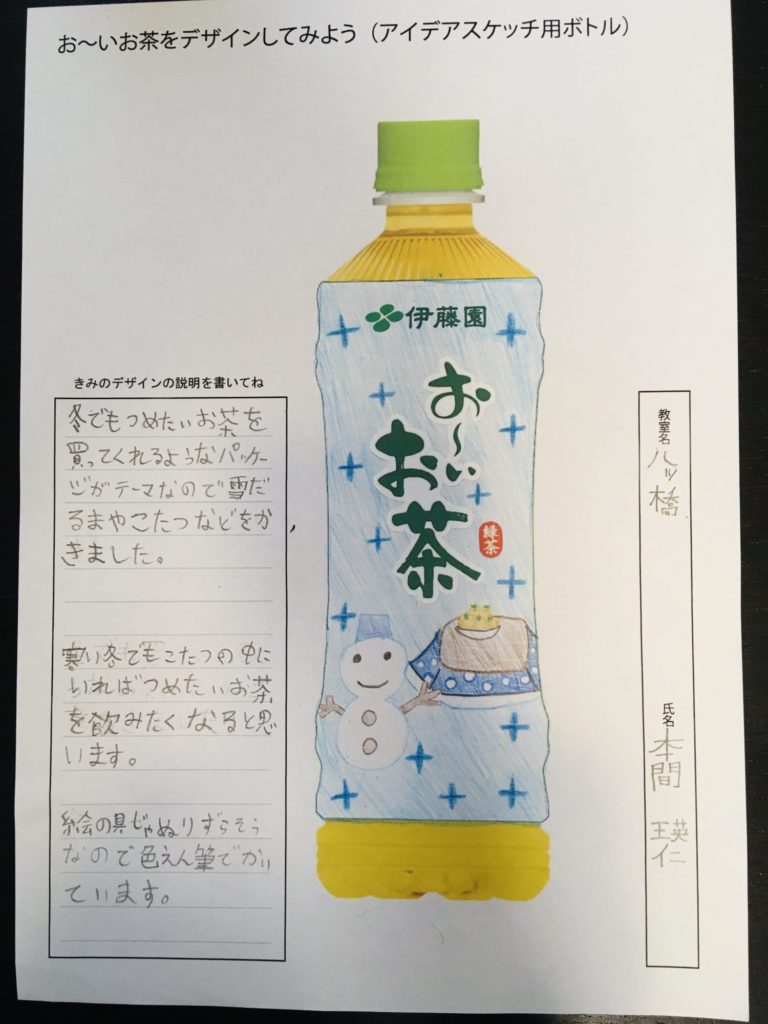 お～いお茶をデザインしてみよう（アイデアスケッチ用ボトル）
伊藤園
お～い
お茶
緑茶
きみのデザインの説明を書いてね
冬でもつめたいお茶を
買ってくれるようなパッケー
ジがテーマなので雪だ
るまやこたつなどをか
きました。
寒い冬でもこたつの中に
いればつめたいお茶
を飲みたくなると思
います。
絵の具じゃぬりずらそう
なので色えん筆でかい
ています。
教室名
八ッ橋
氏名
本間 瑛仁